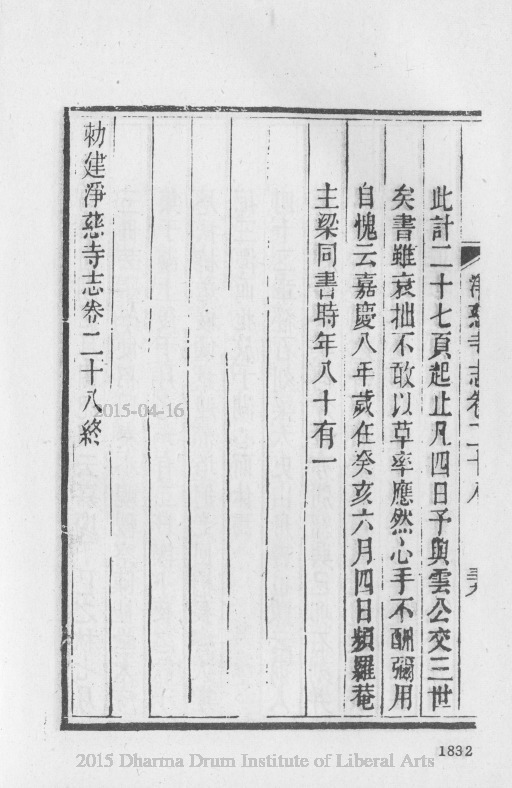 淨慈寺志卷二十八
三九
此計二十七頁起止凡四日予與雲公交三世
矣書雖衰拙不敢以草率應然心手不酬彌用
自愧云嘉慶八年歲在癸亥六月四日頻羅菴
主梁同書時年八十有一
勅建淨慈寺志卷二十八終
2015-04-16
1832
2015 Dharma Drum Institute of Liberal Arts